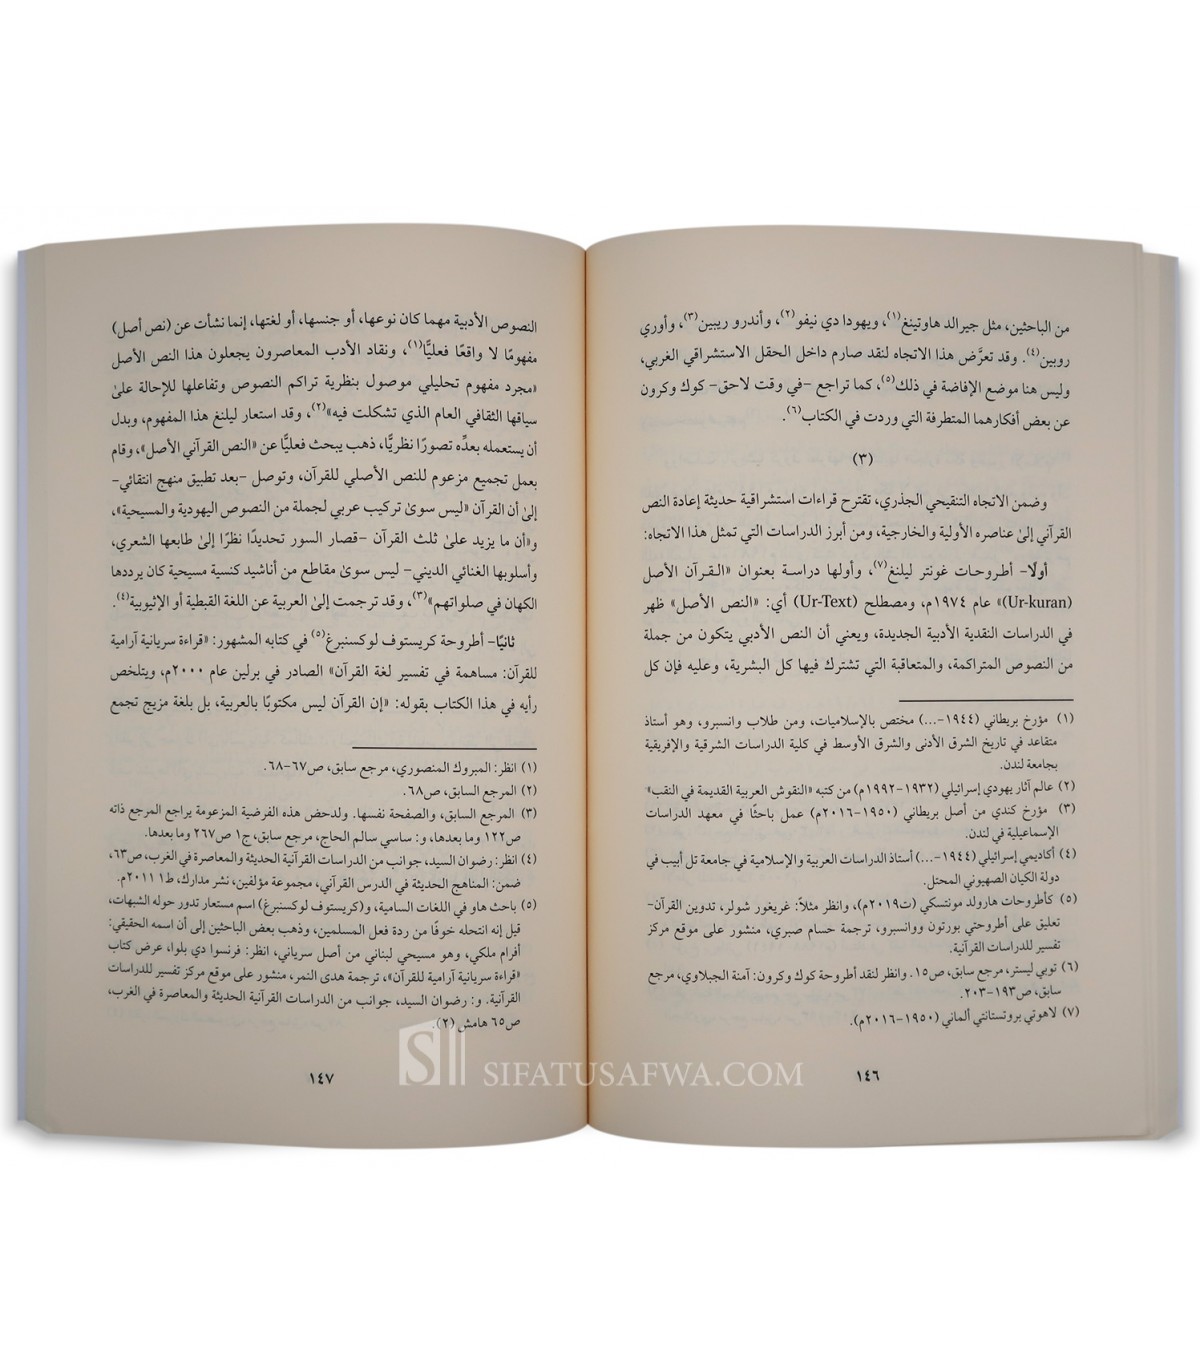 من الباحثين، مثل جيرالد هاوتينغ(١)، ويهودا دي نيفو(٢)، وأندرو ريبين(٣)، وأوري
روبين(٤). وقد تعرَّض هذا الاتجاه لنقد صارم داخل الحقل الاستشراقي الغربي،
وليس هنا موضع الإفاضة في ذلك(٥)، كما تراجع -في وقت لاحق- كوك وكرون
عن بعض أفكارهما المتطرفة التي وردت في الكتاب(٦).
(٣)
وضمن الاتجاه التنقيحي الجذري، تقترح قراءات استشراقية حديثة إعادة النص
القرآني إلىٰ عناصره الأولية والخارجية، ومن أبرز الدراسات التي تمثل هذا الاتجاه:
أولًا- أطروحات غونتر ليلنغ(٧)، وأولها دراسة بعنوان «القرآن الأصل
(Ur-kuran)» عام ١٩٧٤م، ومصطلح (Ur-Text) أي: «النص الأصل» ظهر
في الدراسات النقدية الأدبية الجديدة، ويعني أن النص الأدبي يتكون من جملة
من النصوص المتراكمة، والمتعاقبة التي تشترك فيها كل البشرية، وعليه فإن كل
(١) مؤرخ بريطاني (١٩٤٤-...) مختص بالإسلاميات، ومن طلاب وانسبرو، وهو أستاذ
متقاعد في تاريخ الشرق الأدنى والشرق الأوسط في كلية الدراسات الشرقية والإفريقية
بجامعة لندن.
(٢) عالم آثار يهودي إسرائيلي (١٩٣٢-١٩٩٢م) من كتبه «النقوش العربية القديمة في النقب»
(٣) مؤرخ كندي من أصل بريطاني (١٩٥٠-٢٠١٦م) عمل باحثًا في معهد الدراسات
الإسماعيلية في لندن.
(٤) أكاديمي إسرائيلي (١٩٤٤-...) أستاذ الدراسات العربية والإسلامية في جامعة تل أبيب في
دولة الكيان الصهيوني المحتل.
(٥) كأطروحات هارولد موتسكي (ت٢٠١٩م)، وانظر مثلًا: غريغور شولر، تدوين القرآن-
تعليق على أطروحتي بورتون ووانسبرو، ترجمة حسام صبري، منشور على موقع مركز
تفسير للدراسات القرآنية.
(٦) توبي ليستر، مرجع سابق، ص١٥. وانظر لنقد أطروحة كوك وكرون: آمنة الجبلاوي، مرجع
سابق، ص١٩٣-٢٠٣.
(٧) لاهوتي بروتستانتي ألماني (١٩٥٠-٢٠١٦م).
١٤٦
النصوص الأدبية مهما كان نوعها، أو جنسها، أو لغتها، إنما نشأت عن (نص أصل)
مفهومًا لا واقعًا فعليًّا(١)، ونقاد الأدب المعاصرون يجعلون هذا النص الأصل
«مجرد مفهوم تحليلي موصول بنظرية تراكم النصوص وتفاعلها للإحالة علىٰ
سياقها الثقافي العام الذي تشكلت فيه»(٢)، وقد استعار ليلنغ هذا المفهوم، وبدل
أن يستعمله بعدِّه تصورًا نظريًّا، ذهب يبحث فعليًّا عن «النص القرآني الأصل»، وقام
بعمل تجميع مزعوم للنص الأصلي للقرآن، وتوصل -بعد تطبيق منهج انتقائي-
إلىٰ أن القرآن «ليس سوىٰ تركيب عربي لجملة من النصوص اليهودية والمسيحية»،
و«أن ما يزيد علىٰ ثلث القرآن -قصار السور تحديدًا نظرًا إلىٰ طابعها الشعري،
وأسلوبها الغنائي الديني- ليس سوىٰ مقاطع من أناشيد كنسية مسيحية كان يرددها
الكهان في صلواتهم»(٣)، وقد ترجمت إلىٰ العربية عن اللغة القبطية أو الإثيوبية(٤).
ثانيًا- أطروحة كريستوف لوكسنبرغ(٥) في كتابه المشهور: «قراءة سريانية آرامية
للقرآن: مساهمة في تفسير لغة القرآن» الصادر في برلين عام ٢٠٠٠م، ويتلخص
رأيه في هذا الكتاب بقوله: «إن القرآن ليس مكتوبًا بالعربية، بل بلغة مزيج تجمع
(١) انظر: المبروك المنصوري، مرجع سابق، ص٦٧-٦٨.
(٢) المرجع السابق، ص٦٨.
(٣) المرجع السابق، والصفحة نفسها. ولدحض هذه الفرضية المزعومة يراجع المرجع ذاته
ص١٢٢ وما بعدها، و: ساسي سالم الحاج، مرجع سابق، ج١ ص٢٦٧ وما بعدها.
(٤) انظر: رضوان السيد، جوانب من الدراسات القرآنية الحديثة والمعاصرة في الغرب، ص٦٣،
ضمن: المناهج الحديثة في الدرس القرآني، مجموعة مؤلفين، نشر مدارك، ط١ ٢٠١١م.
(٥) باحث هاو في اللغات السامية، و(كريستوف لوكسنبرغ) اسم مستعار تدور حوله الشبهات،
قيل إنه انتحله خوفًا من ردة فعل المسلمين، وذهب بعض الباحثين إلى أن اسمه الحقيقي:
أفرام ملكي، وهو مسيحي لبناني من أصل سرياني، انظر: فرنسوا دي بلوا، عرض كتاب
«قراءة سريانية آرامية للقرآن»، ترجمة هدى النمر، منشور على موقع مركز تفسير للدراسات
القرآنية. و: رضوان السيد، جوانب من الدراسات القرآنية الحديثة والمعاصرة في الغرب،
ص٦٥ هامش (٢).
١٤٧
SIFATUSAFWA.COM